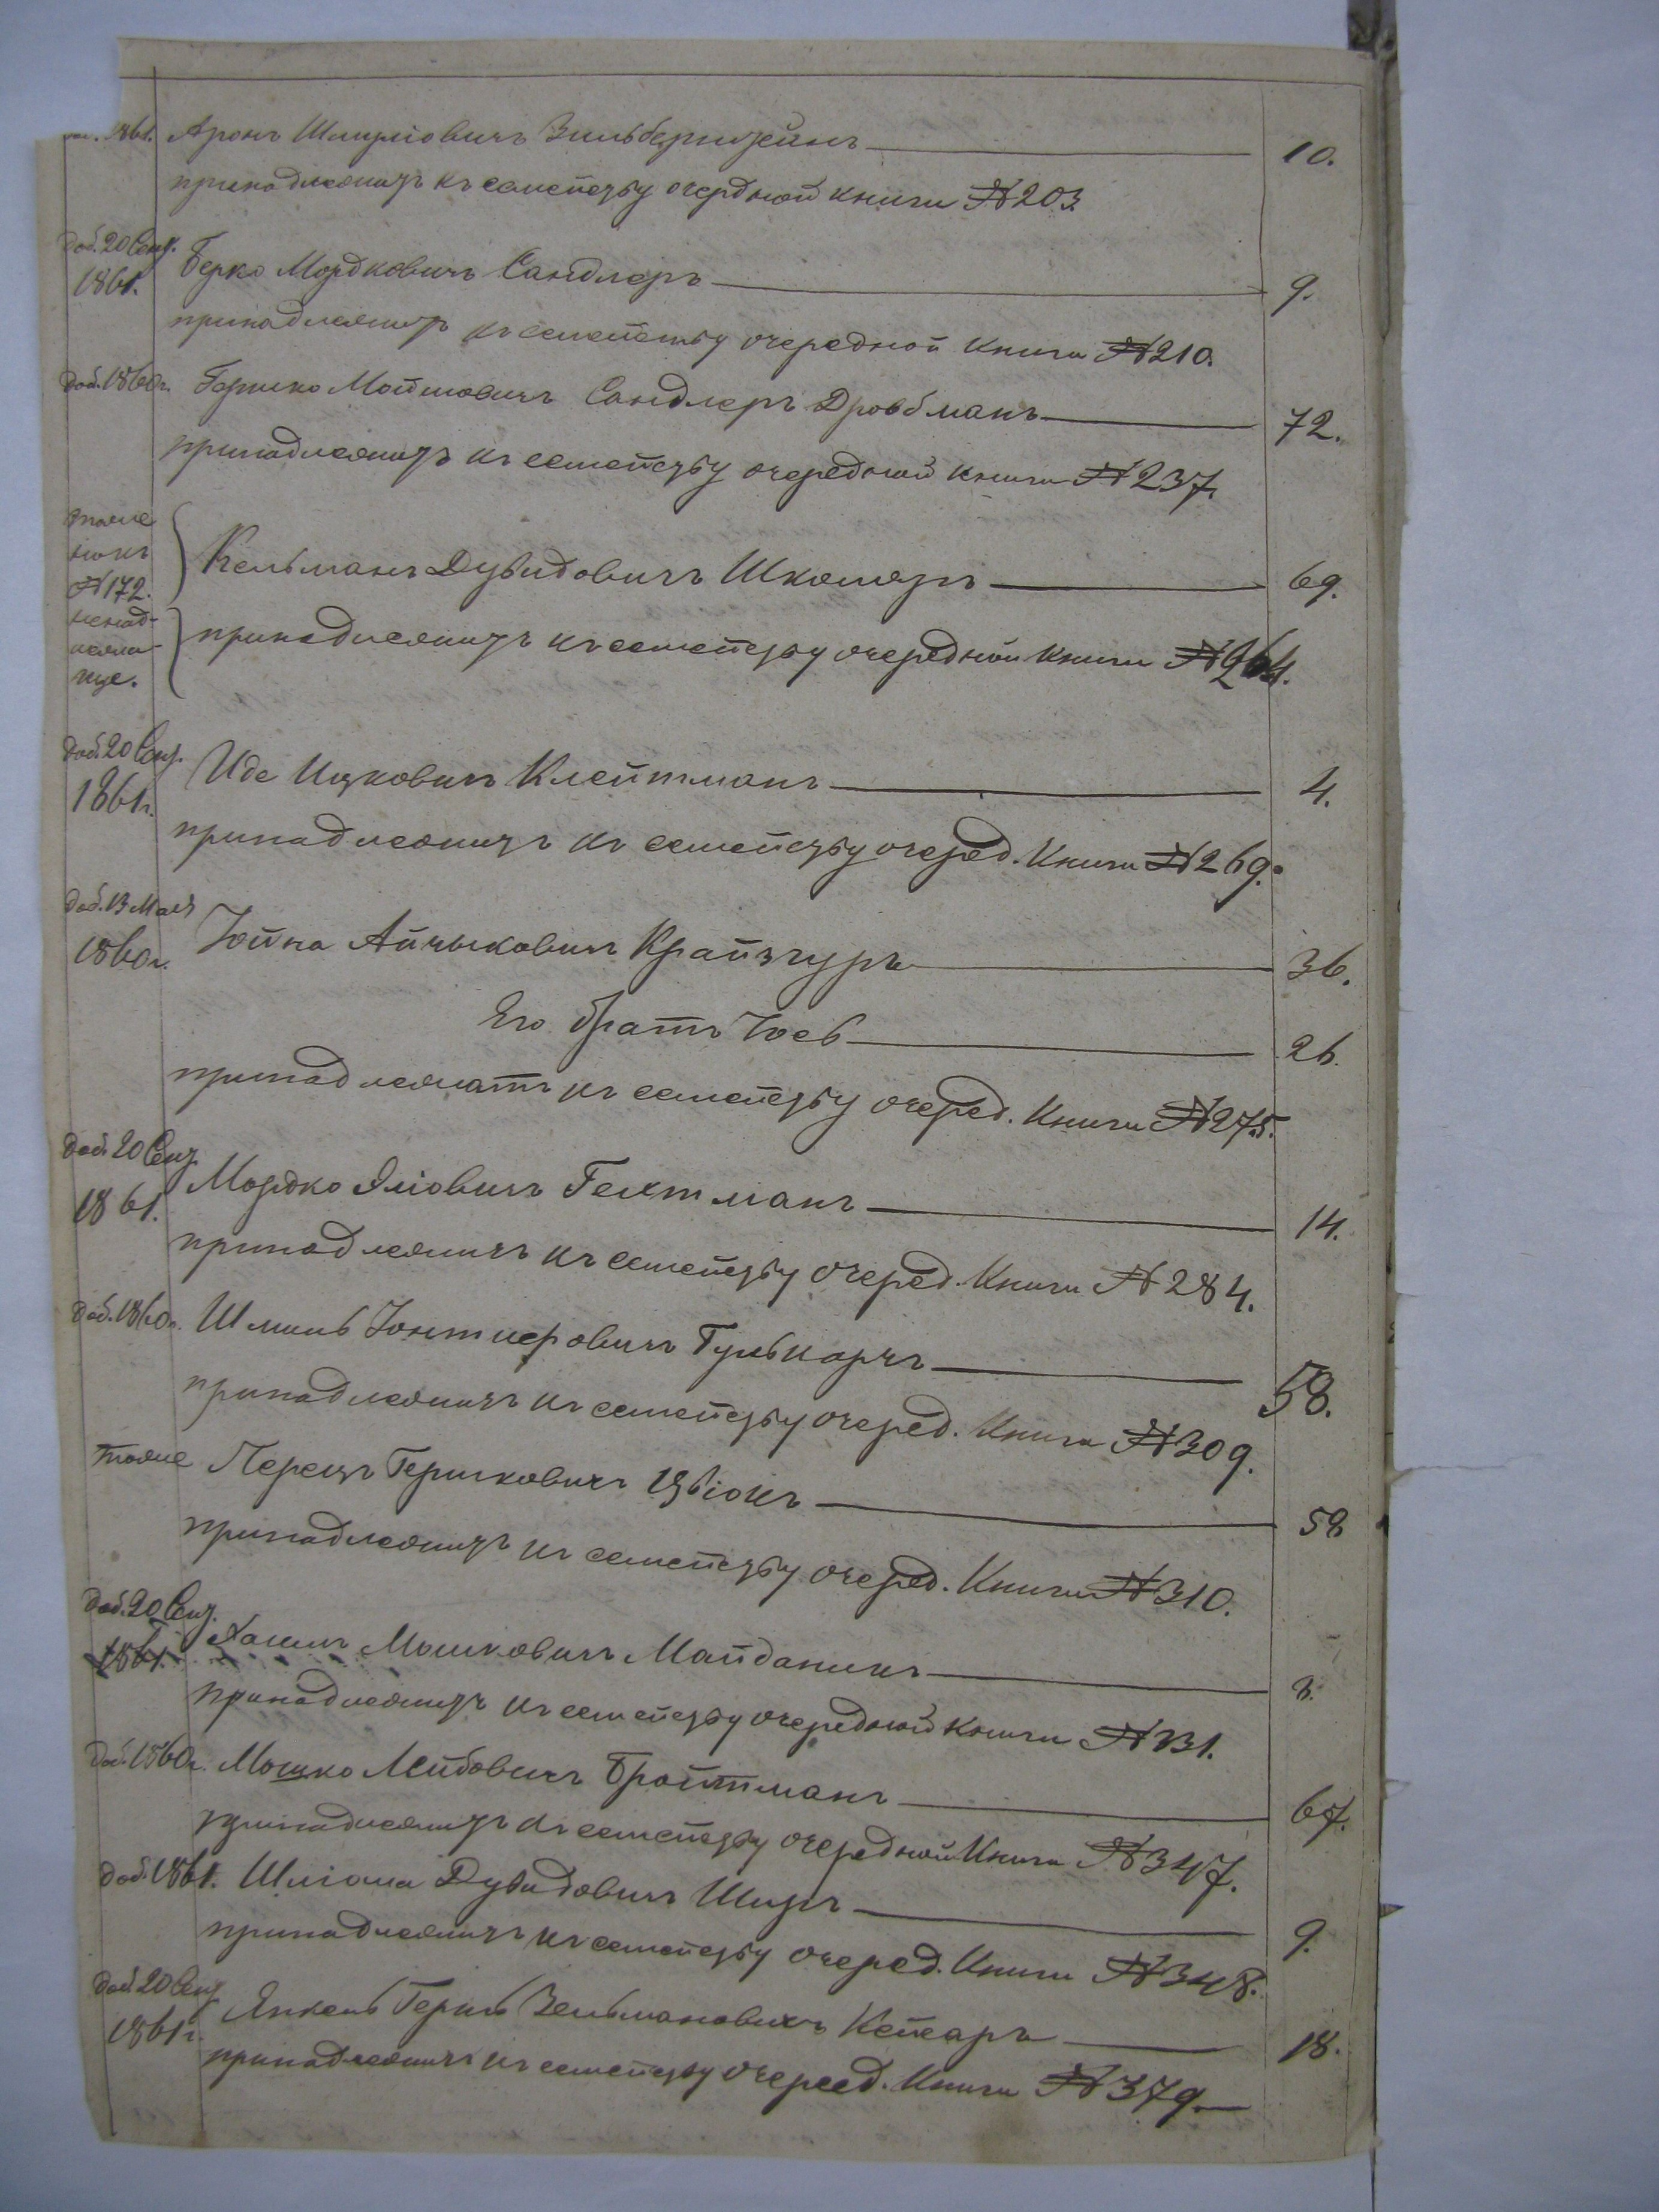 1861. Аронъ Шмуліовичъ Зильберштейнъ 10.
принадлежитъ къ семейству очередной книги № 203
доб. 20 Сент. 1861. Берко Мордковичъ Сандлеръ 9.
принадлежитъ къ семейству очередной книги № 210.
доб. 1860 г. Гершко Мошковичъ Сандлеръ Дровбманъ 72.
принадлежитъ къ семейству очередной книги № 237.
тоже
№ 172.
ненад-
лежа-
ще.
Кельманъ Дувидовичъ Школяръ 69.
принадлежитъ къ семейству очередной книги № 264.
доб. 20 Сент. 1861 г. Иде Ицковичъ Клейтманъ 4.
принадлежитъ къ семейству очеред. книги № 269.
доб. 13 Мая 1860 г. Іойна Айзыковичъ Крайзгуръ 36.
Его братъ Іосъ 26.
принадлежатъ къ семейству очеред. книги № 275.
доб. 20 Сент. 1861. Мордко Яліовичъ Гехтманъ 14.
принадлежитъ къ семейству очеред. книги № 284.
доб. 1860 г. Шмиль Іонтцеровичъ Гулькаръ 58.
принадлежитъ къ семейству очеред. книги № 309.
тоже Перецъ Гершковичъ Цвіокъ 58
принадлежитъ къ семейству очеред. книги № 310.
доб. 20 Сент. 1861. Хаимъ Мошковичъ Майданикъ 3.
принадлежитъ къ семейству очередной книги № 331.
доб. 1860 г. Мошко Лейбовичъ Бройтманъ 67.
принадлежитъ къ семейству очередной книги № 347.
доб. 1861. Шліома Дувидовичъ Ширъ 9.
принадлежитъ къ семейству очеред. книги № 348.
доб. 20 Сент. 1861 г. Янкель Гершъ Зельмановичъ Кесаръ 18.
принадлежитъ къ семейству очеред. книги № 379.